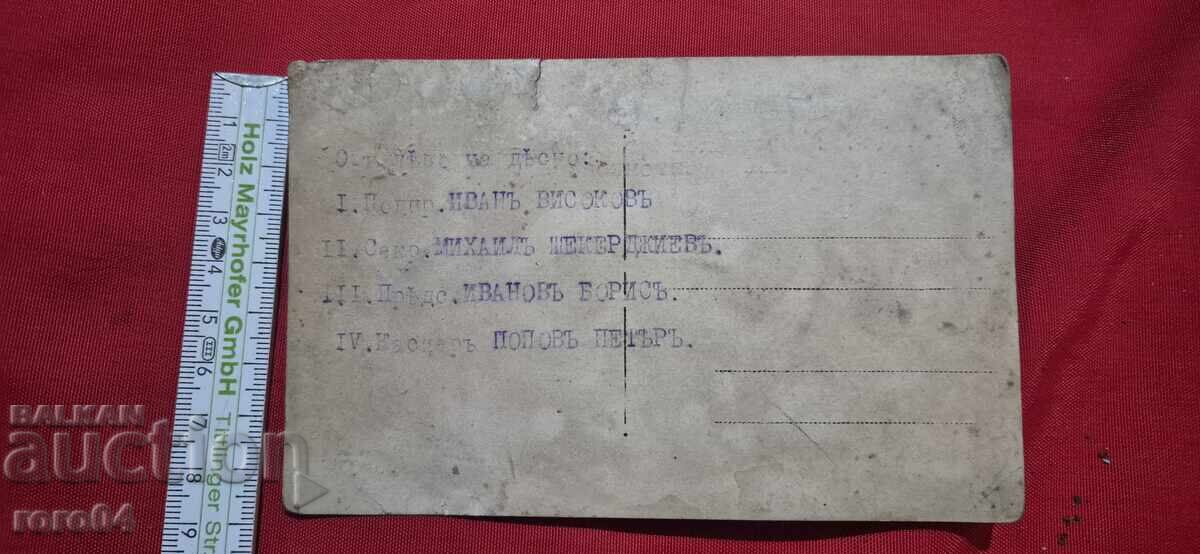 Отъ лѣво на дѣсно:
I.Подпр.ИВАНЪ ВИСОКОВЪ
II.Секр.МИХАИЛЪ ШЕКЕРДЖИЕВЪ.
III.Прѣдс.ИВАНОВЪ БОРИСЪ.
IV.Касиеръ ПОПОВЪ ПЕТЪРЪ.
Holz Mayrhofer GmbH Tittlinger Str
1
2m 2
3
4
5
III 6
7
8
9
BALKAN
auction
roro04